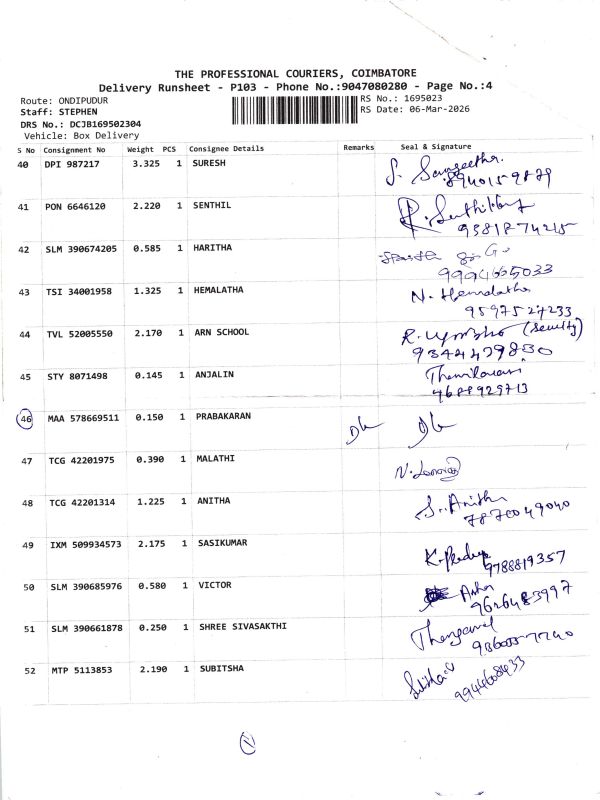 THE PROFESSIONAL COURIERS, COIMBATORE
Delivery Runsheet - P103 - Phone No.:9047080280 - Page No.:4
Route: ONDIPUDUR
Staff: STEPHEN
DRS No.: DCJB169502304
Vehicle: Box Delivery
RS No.: 1695023
RS Date: 06-Mar-2026
S No Consignment No Weight PCS Consignee Details Remarks Seal & Signature
40 DPI 987217 3.325 1 SURESH S. Sangeetha.
8940159879
41 PON 6646120 2.220 1 SENTHIL
9381874215
42 SLM 390674205 0.585 1 HARITHA
9994665033
43 TSI 34001958 1.325 1 HEMALATHA N. Hemalatha
9597527233
44 TVL 52005550 2.170 1 ARN SCHOOL (Security)
9344479830
45 STY 8071498 0.145 1 ANJALIN
46 MAA 578669511 0.150 1 PRABAKARAN
47 TCG 42201975 0.390 1 MALATHI
48 TCG 42201314 1.225 1 ANITHA S. Anitha
7870049040
49 IXM 509934573 2.175 1 SASIKUMAR K. Pradeep
9788819357
50 SLM 390685976 0.580 1 VICTOR Asha
9626483997
51 SLM 390661878 0.250 1 SHREE SIVASAKTHI Thangavel
52 MTP 5113853 2.190 1 SUBITSHA
9944608433